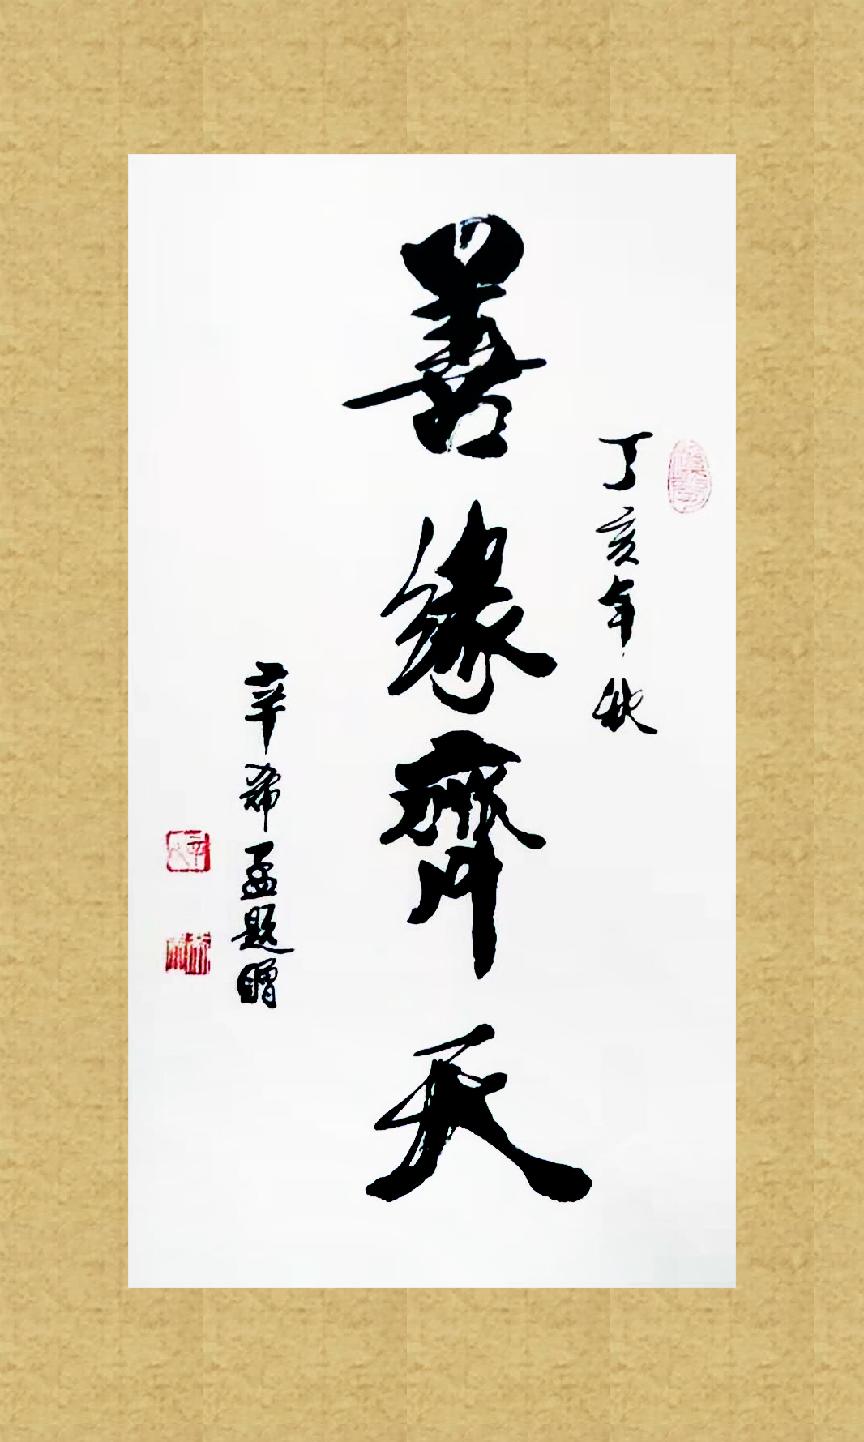 丁亥年秋
善緣齊天
辛希孟題贈